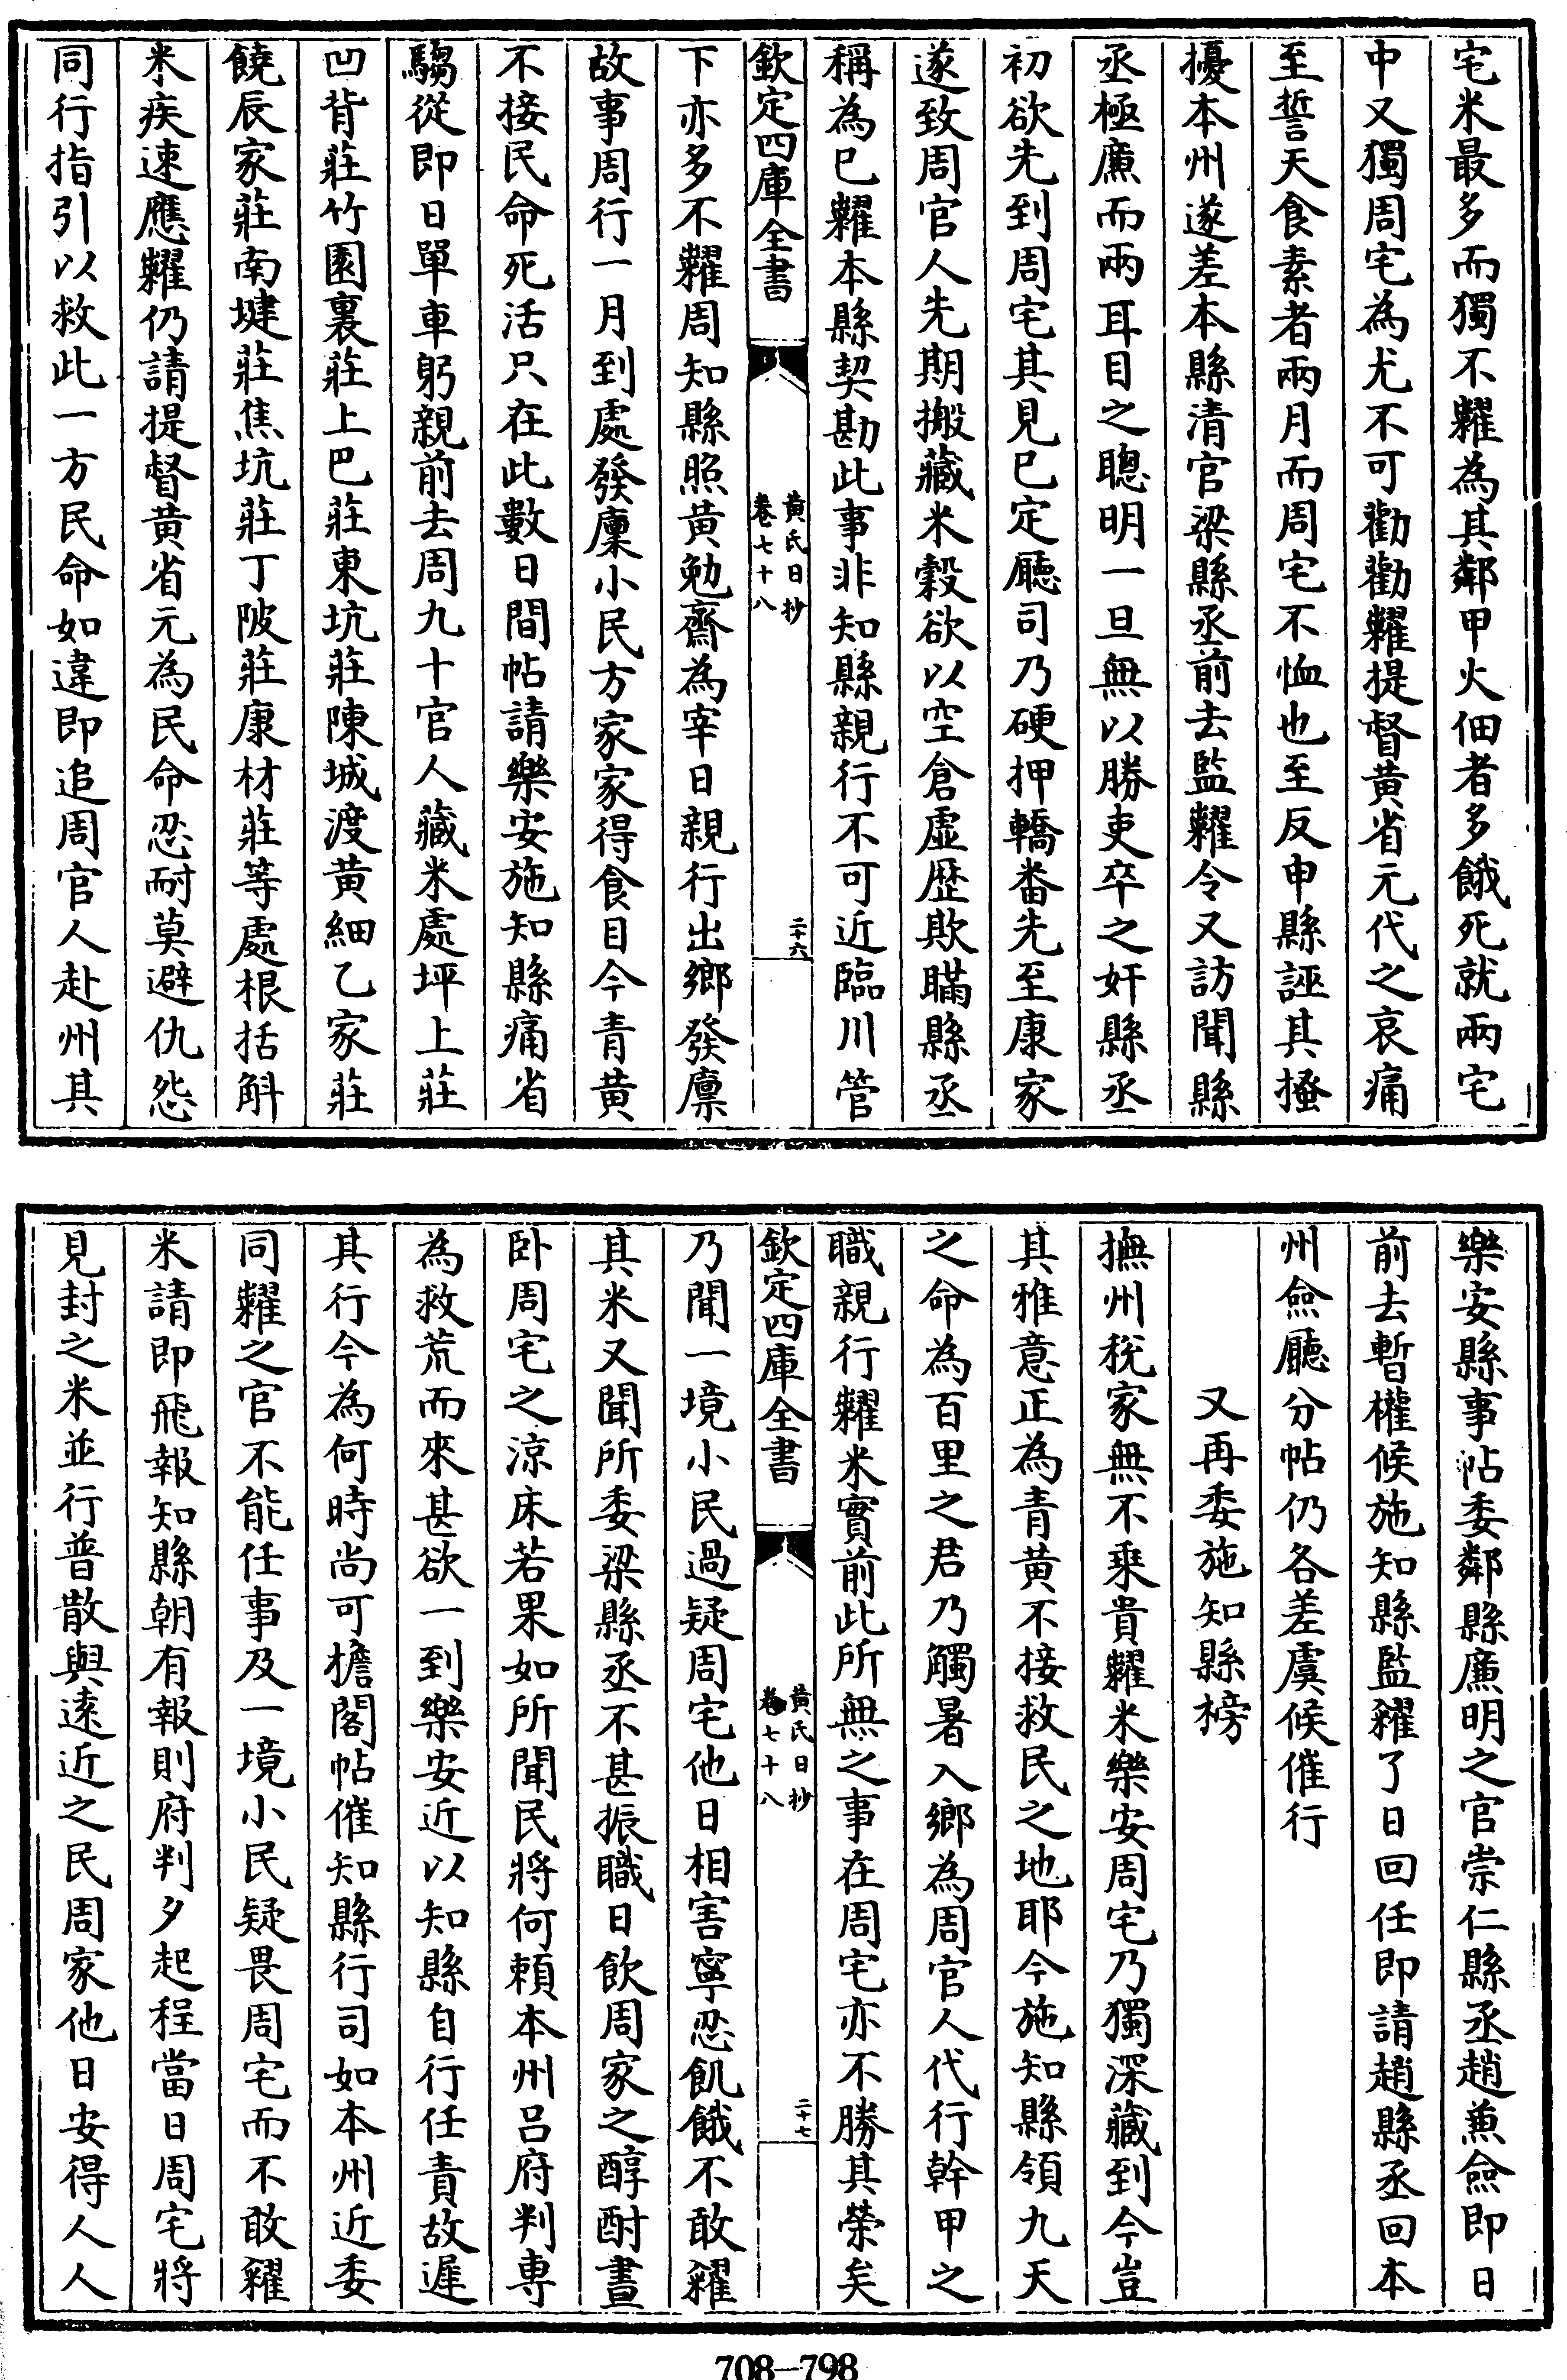 宅米最多而獨不糶為其鄰甲火佃者多餓死就兩宅
中又獨周宅為尤不可勸勸糶提督黄省元代之哀痛
至誓天食素者兩月而周宅不恤也至反申縣誣其搔
擾本州遂差本縣清官梁縣丞前去監糶令又訪聞縣
丞極廉而兩耳目之聰明一旦無以勝吏卒之奸縣丞
初欲先到周宅其見巳定廳司乃硬押轎畨先至康家
遂致周官人先期搬藏米穀欲以空倉虛歷欺瞞縣丞
稱為巳糶本縣契勘此事非知縣親行不可近臨川管
欽定四庫全書
黄氏日抄
卷七十八
二十六
下亦多不糶周知縣照黄勉齋為宰日親行出鄉發廩
故事周行一月到處發廩小民方家家得食目今青黄
不接民命死活只在此數日間帖請樂安施知縣痛省
騶從即日單車躬親前去周九十官人藏米處坪上莊
凹背莊竹園裏莊上巴莊東坑莊陳城渡黄細乙家莊
饒辰家莊南㨗莊焦坑莊丁陂莊康材莊等處根括斛
米疾速應糶仍請提督黄省元為民命忍耐莫避仇怨
同行指引以救此一方民命如違即追周官人赴州其
樂安縣事帖委鄰縣廉明之官崇仁縣丞趙兼僉即日
前去暫權候施知縣監糴了日回任即請趙縣丞回本
州僉廳分帖仍各差虞候催行
又再委施知縣榜
撫州稅家無不乘貴糶米樂安周宅乃獨深藏到今豈
其雅意正為青黄不接救民之地耶今施知縣領九天
之命為百里之君乃觸暑入鄉為周官人代行幹甲之
職親行糶米實前此所無之事在周宅亦不勝其榮矣
欽定四庫全書
黄氏日抄
卷七十八
二十七
乃聞一境小民過疑周宅他日相害寧忍飢餓不敢糴
其米又聞所委梁縣丞不甚振職日飲周家之醇酎晝
卧周宅之涼床若果如所聞民將何賴本州呂府判專
為救荒而來甚欲一到樂安近以知縣自行任責故遲
其行今為何時尚可擔閣帖催知縣行司如本州近委
同糶之官不能任事及一境小民疑畏周宅而不敢糴
米請即飛報知縣朝有報則府判夕起程當日周宅將
見封之米並行普散與遠近之民周家他日安得人人
708—798